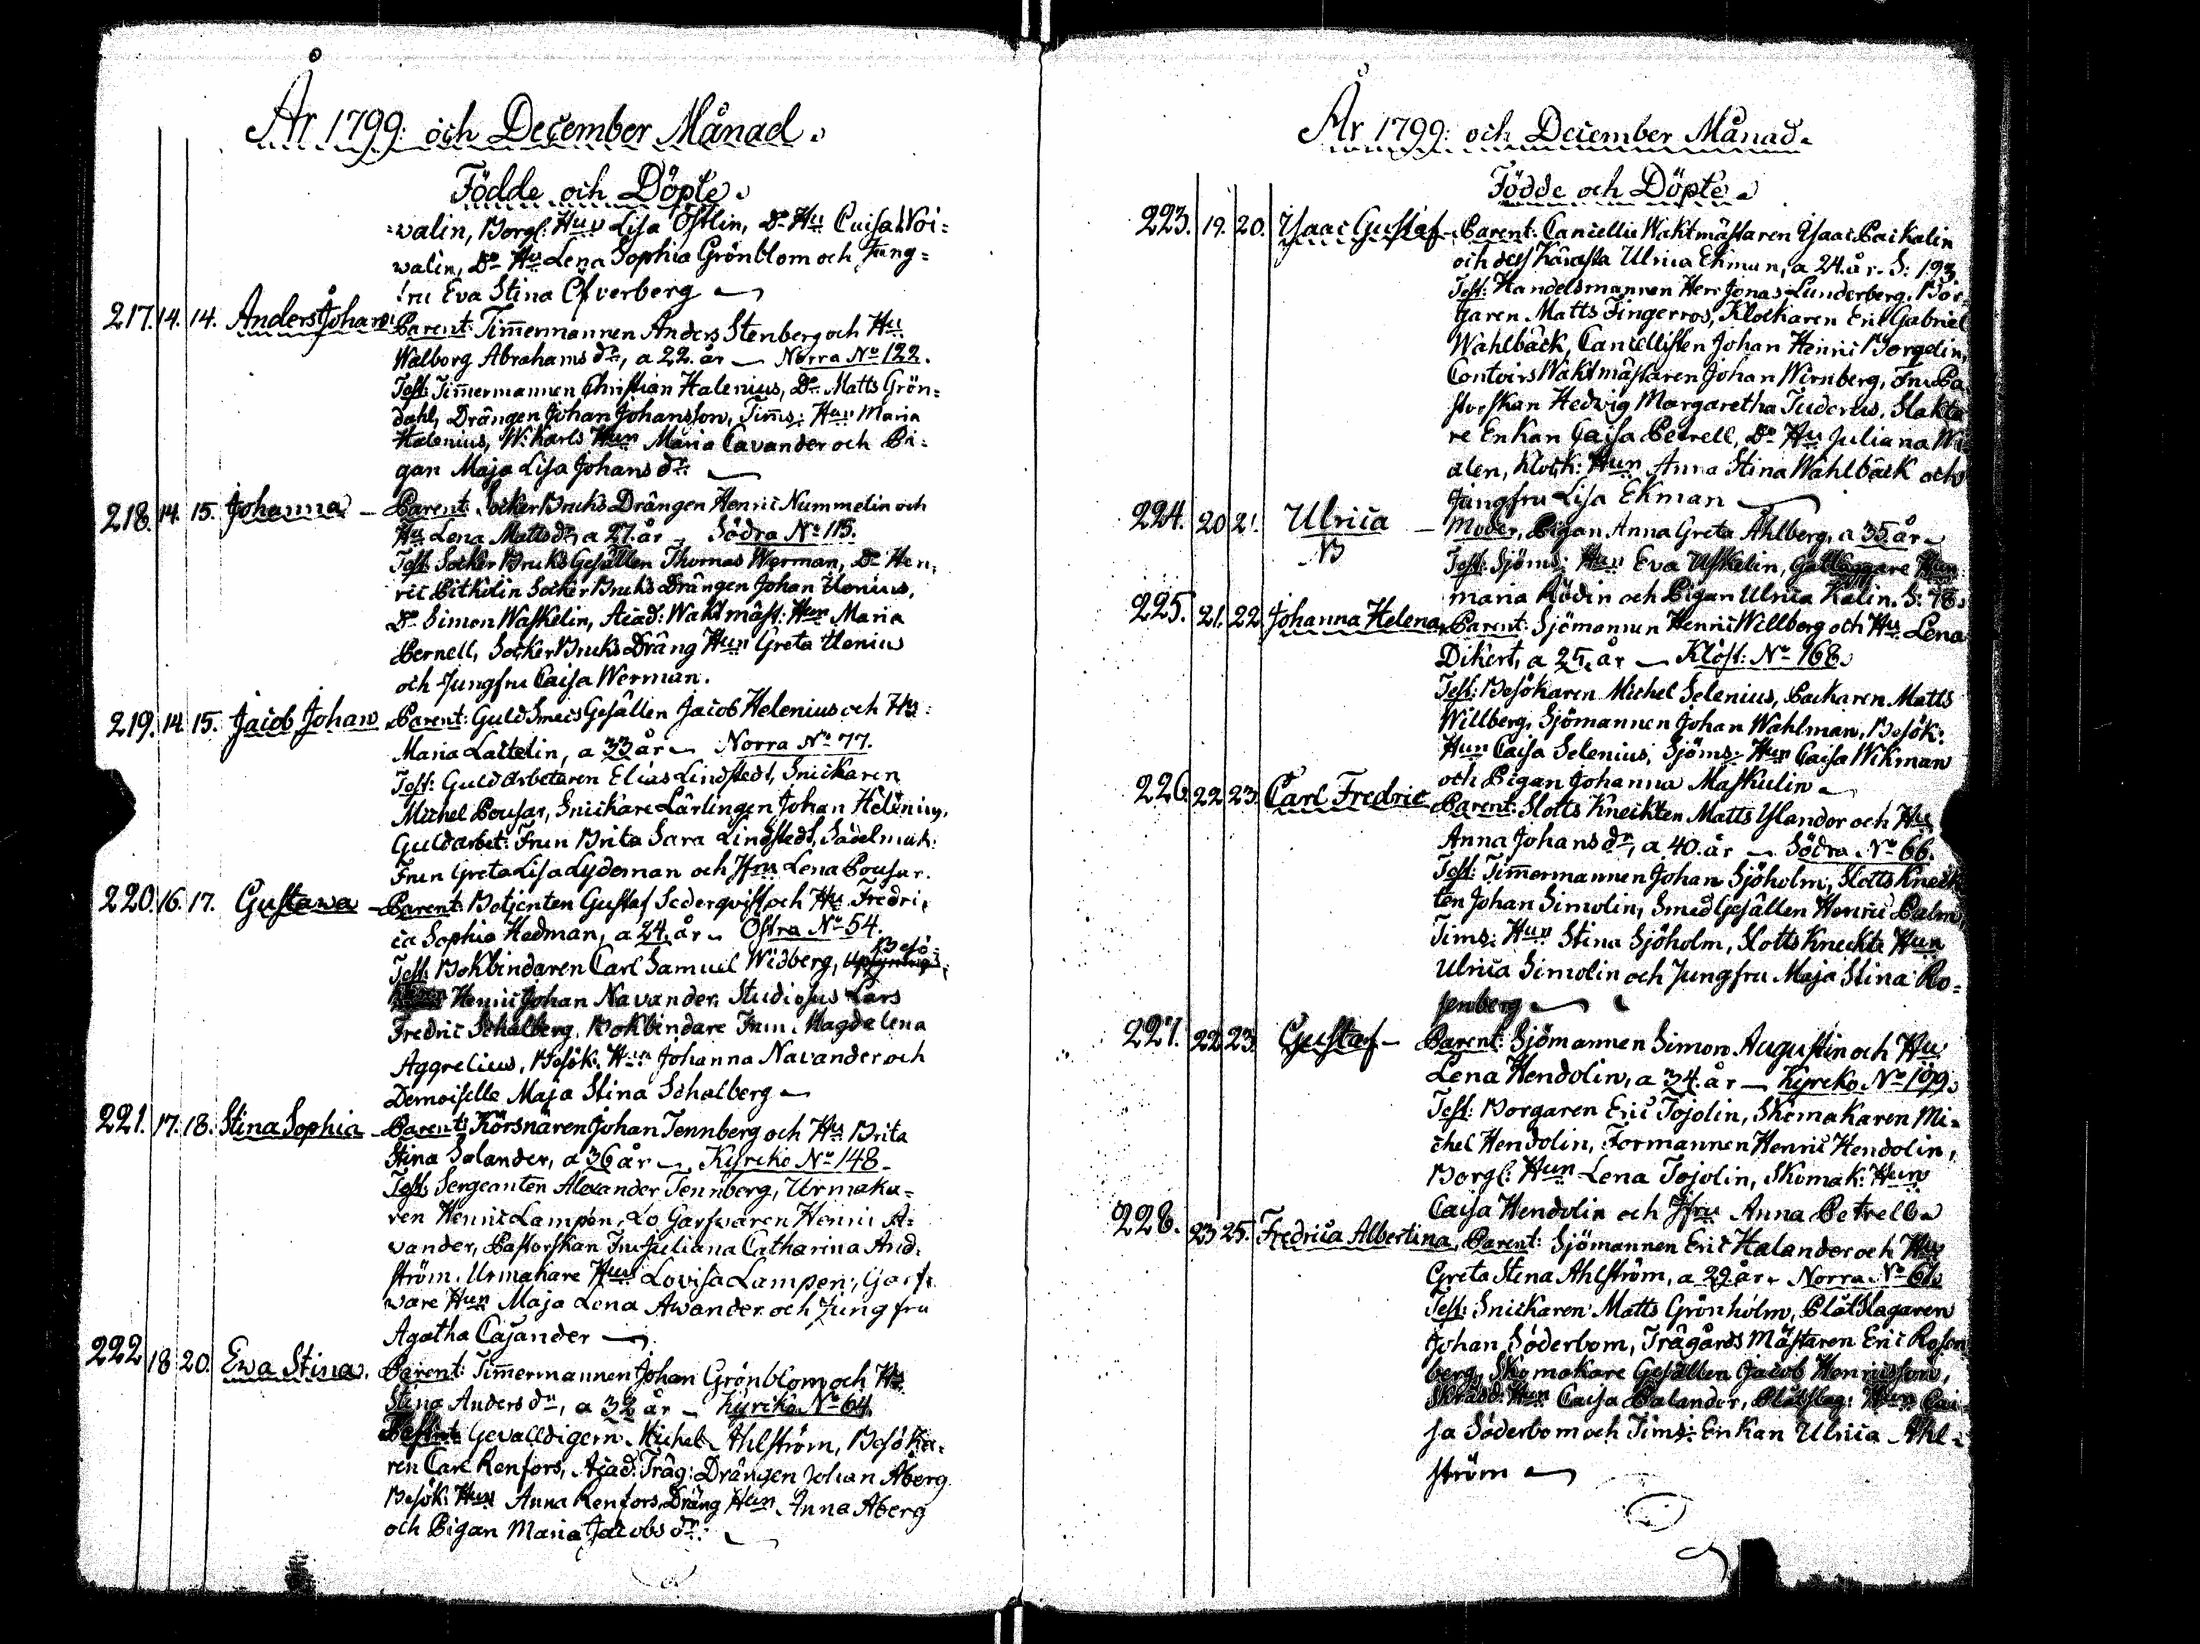 År 1799: och December Månad.
Födde och Döpte.
walin, Borgl: Hun Lisa Östlin, Do Hu Caisa Noi=
walin, Do Hu Lena Sophia Grönblom och Jung=
fru Eva Stina Öfverberg
217. 14. 14. Anders Johan Parent: Tim̄ermannen Anders Stenberg och Hu
Walborg Abrahams dr, a 22. år — Norra No 122.
Test: Tim̄ermannen Christian Halenius, Do Matts Grön=
dahl, Drängen Johan Johansson, Tim̄s: Hun Maria
Halenius, W: Karls Hun Maria Cavander och Pi=
gan Maja Lisa Johans dr:
218. 14. 15. Johanna — Parent: Socker Bruks Drängen Henric Nummelin och
Hu Lena Matts dr, a 27. år — Södra No 115.
Test: Socker Bruks Gesällen Thomas Werman, Do Hen=
ric Pitkelin Socker Bruks Drängen Johan Henius,
Do Simon Waskelin, Acad: Waktmäst: Hun Maria
Bernell, Socker Bruks Dräng Hun Greta Henius
och Jungfru Caisa Werman.
219. 14. 15. Jacob Johan Parent: Guld Smeds Gesällen Jacob Helenius och Hu:
Maria Lattelin, a 33 år — Norra No 77.
Test: Guld Arbetaren Elias Lindstedt, Snickaren
Michel Pousar, Snickare Lärlingen Johan Helenius,
Guldarbet: Frun Brita Sara Lindstedt, Sadelmak:
Frun Greta Lisa Lydeman och Jfru Lena Pousar.
220. 16. 17. Gustava — Parent: Betjenten Gustaf Sederqvist och Hu Fredri=
ca Sophia Hedman, a 24. år — Östra No 54.
Besö=
Test: Bokbindaren Carl Samuel Widberg,
Henric Johan Navander, Studiosus Lars
Fredric Schalberg, Bokbindare Frun Magdalena
Aggrelius, Besök: Hun Johanna Navander och
Demoiselle Maja Stina Schalberg —
221. 17. 18. Stina Sophia — Parent: Körsnären Johan Tennberg och Hu Brita
Stina Salander, a 36 år — Kyrcko No 148.
Test: Sergeanten Alexander Tennberg, Urmaka=
ren Henric Lampén, Lo Garfvaren Henric A=
vander, Pastorskan Fru Juliana Catharina And=
ström, Urmakare Hun Lovisa Lampen, Garf=
vare Hun Maja Lena Avander och Jungfru
Agatha Cajander —
222 18 20. Ewa Stina. Parent: Tim̄ermannen Johan Grönblom och Hu
Stina Anders dr, a 32 år — Kyrcko No 64.
Gevalldigern Michel Ahlström, Besöka=
ren Carl Renfors, Acad: Träg: Drängen Johan Åberg
Besök: Hun Anna Renfors, Dräng Hun Anna Åberg
och Pigan Maria Jacobs dr:
År 1799: och December Månad.
Födde och Döpte.
223. 19. 20. Ysaac Gustaf Parent: Cancellie Waktmästaren Ysaac Packalin
och dess Kärasta Ulrica Ekman, a 24. år. S: 193
Test: Handelsmannen Herr Jonas Lunderberg, Bor=
garen Matts Fingerros, Klockaren Eric Gabriel
Wahlbäck, Cancellisten Johan Henric Borgelin,
Contoirs Waktmästaren Johan Wirnberg, Fru Pa
storskan Hedvig Margaretha Juderus, Slakta
re Enkan Caisa Petrell, Do Hu Juliana Wi
alen, Klock: Hun Anna Stina Wahlbäck och
Jungfru Lisa Ekman —
224. 20 21. Ulrica — Moder, Pigan Anna Greta Ahlberg, a 35 år —
NB
Test: Sjöms: Hun Eva Uskelin, Gatläggare Hun
Maria Rödin och Pigan Ulrica Kalin. S: 78.
225. 21. 22. Johanna Helena, Parent: Sjömannen Henric Willberg och Hu Lena
Dikert, a 25. år — Klöst: No 168.
Test: Besökaren Michel Selenius, Backaren Matts
Willberg, Sjömannen Johan Wahlman, Besök:
Hun Caisa Selenius, Sjöms: Hun Caisa Wikman
och Pigan Johanna Maskulin —
226. 22 23. Carl Fredric Parent: Slotts Knechten Matts Yslander och Hu
Anna Johans dr, a 40. år — Södra No 66.
Test: Tim̄ermannen Johan Sjöholm, Slotts Knech
ten Johan Simolin, Smed Gesällen Henric Palm,
Tims: Hun Stina Sjöholm, Slotts Knechts Hun
Ulrica Simolin och Jungfru Maja Stina Ro=
senberg —
227. 22 23. Gustaf — Parent: Sjömannen Simon Augustin och Hu
Lena Hendolin, a 34. år — Kyrcko No 199.
Test: Borgaren Eric Tojolin, Skomakaren Mi=
chel Hendolin, Formannen Henric Hendolin,
Borgl: Hun Lena Tojolin, Skomak: Hun
Caisa Hendolin och Jfru Anna Petrell —
228. 23 25. Fredrica Albertina, Parent: Sjömannen Eric Halander och Hu
Greta Stina Ahlström, a 29. år — Norra No 61.
Test: Snickaren Matts Grönholm, Plåtslagaren
Johan Söderbom, Trägårds Mästaren Eric Rosen
berg, Skomakare Gesällen Jacob Henricsson,
Skrädd: Hun Caisa Palander, Plåtslag: Hun Cai=
sa Söderbom och Tims: Enkan Ulrica Ahl=
ström —